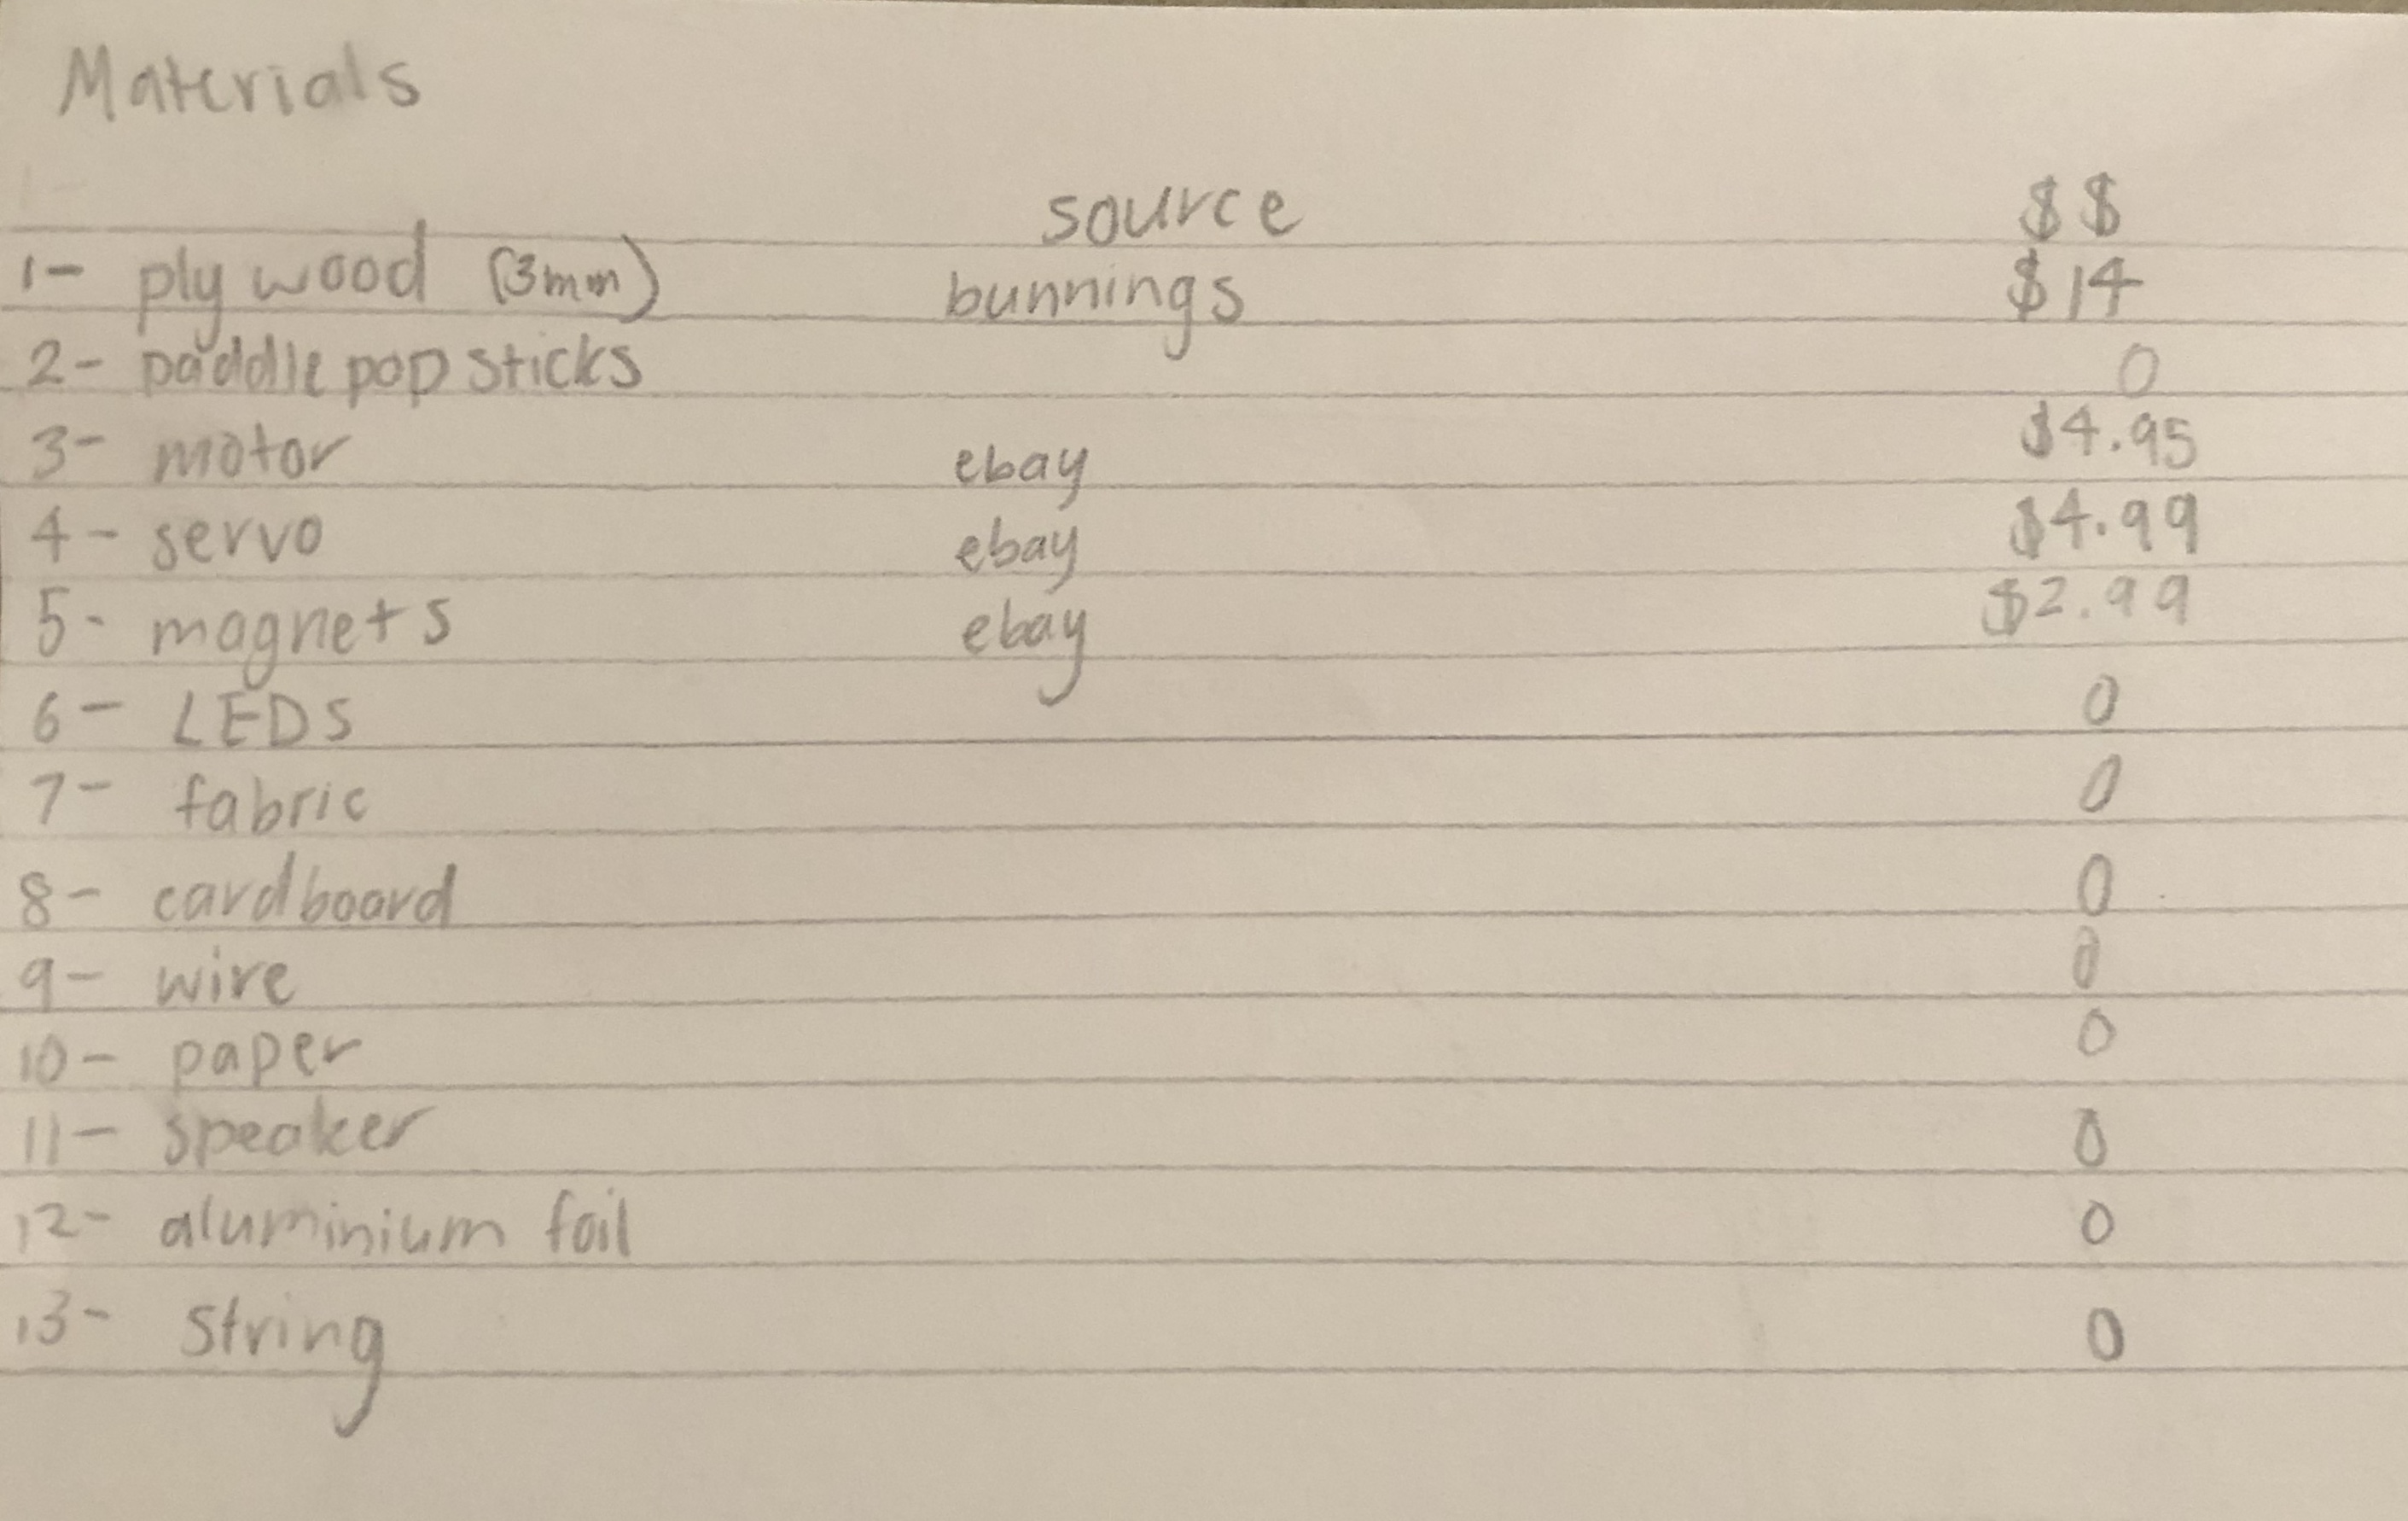 Materials
source $$
1- plywood (3mm) bunnings $14
2- paddle pop sticks 0
3- motor ebay $4.95
4- servo ebay $4.99
5- magnets ebay $2.99
6- LEDS 0
7- fabric 0
8- cardboard 0
9- wire 0
10- paper 0
11- speaker 0
12- aluminium foil 0
13- string 0